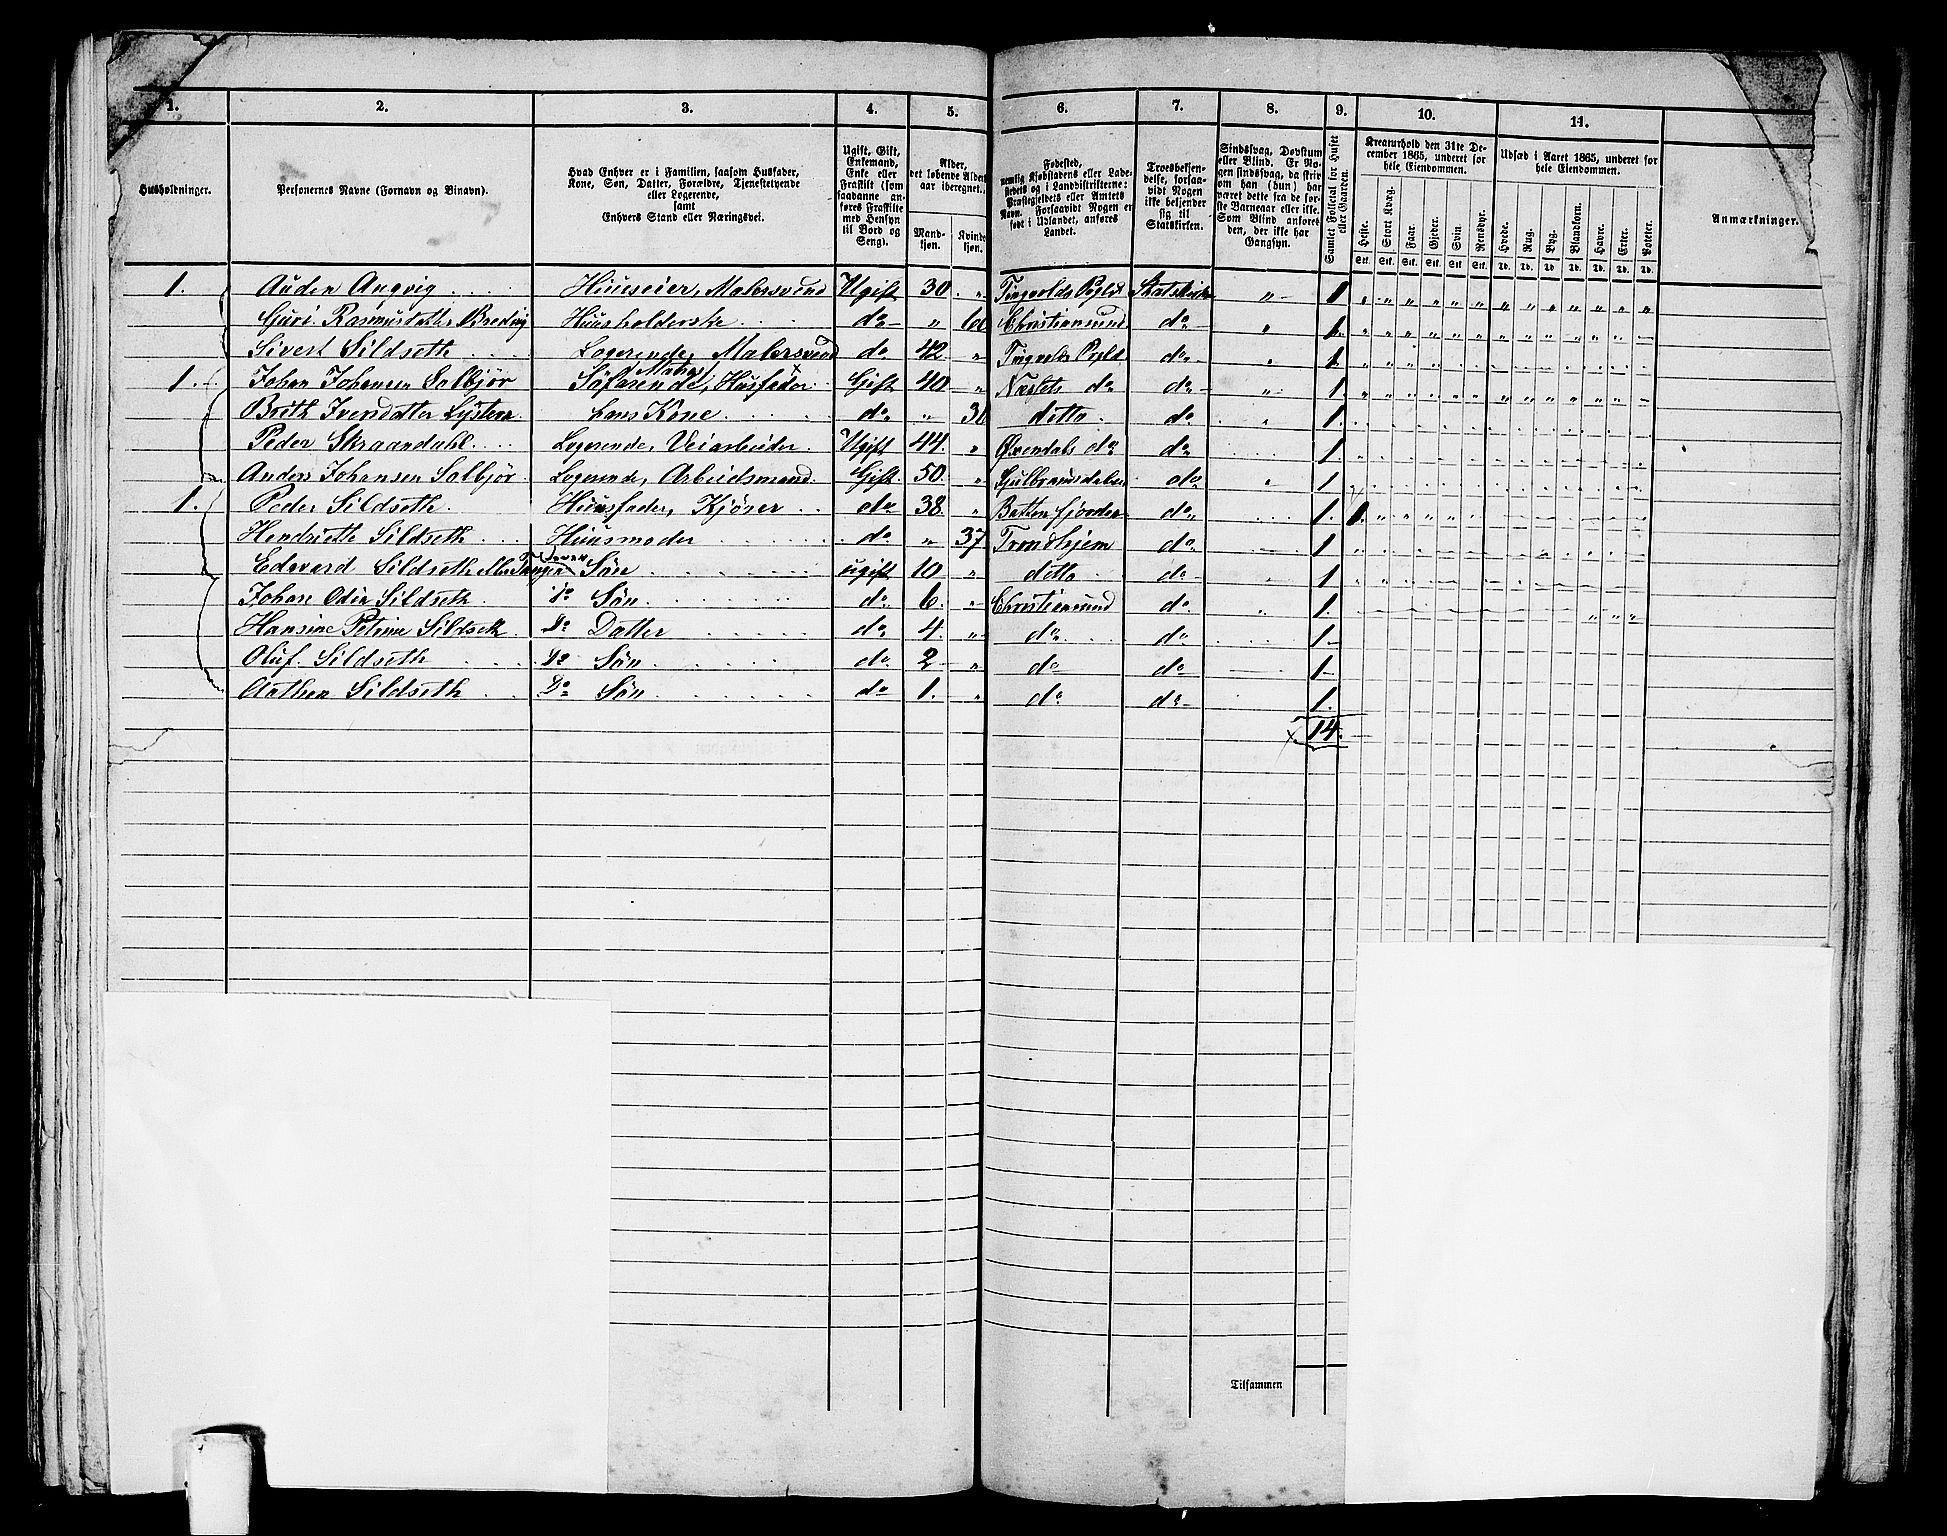 1. 2. 3. 4. 5. 6. 7. 8. 9. 10. 11.
Husholdninger.
Personernes Navne (Fornavn og Binavn).
Hvad Enhver er i Familien, saasom Husfader,
Kone, Søn, Datter, Forældre, Tjenestetyende
eller Logerende,
samt
Enhvers Stand eller Næringsvei.
Ugift, Gift,
Enkemand,
Enke eller
Fraskilt (som
saadanne an-
føres Fraskilte
med Hensyn
til Bord og
Seng).
Alder,
det løbende Alders-
aar iberegnet.
Mand-
kjøn.
Kvinde-
kjøn.
Fødested,
nemlig Kjøbstadens eller Lade-
stedets og i Landdistrikterne:
Præstegjeldets eller Amtets
Navn. Forsaavidt Nogen er
født i Udlandet, anføres
Landet.
Troesbekjen-
delse, forsaa-
vidt Nogen
ikke bekjender
sig til
Statskirken.
Sindssvag, Døvstum
eller Blind. Er No-
gen sindssvag, da skrives
om han (hun) har
været dette fra de før-
ste Barneaar eller ikke.
Som Blind anføres
den, der ikke har
Gangsyn.
Samlet Folketal for Huset
eller Gaarden.
Kreaturhold den 31te De-
cember 1865, underet for
hele Eiendommen.
Heste. Stort Kvæg. Faar. Gjeder. Svin. Rensdyr.
Stk. Stk. Stk. Stk. Stk. Stk.
Udsæd i Aaret 1865, underet for
hele Eiendommen.
Hvede. Rug. Byg. Blandkorn. Havre. Erter. Poteter.
Td. Td. Td. Td. Td. Td. Td.
Anmærkninger.
1. Auden Angvig Huuseier, Malersvend Ugift 30 " Tingvolds Pgld Statskirke " 1
Guri Rasmusdatter Bredvig Huusholderske do " 60 Christiansund do " 1.
Sivert Sildseth Logerende, Malersvend do 42 " Tingvolds Pgld do " 1
Matros
1. Johan Johansen Solbjør Søfarende, Husfader Gift 40 " Næssets do do " 1.
Brith Iversdatter hans Kone do " ditto do " 1.
Peder Skraandahl Logerende, Veiarbeider Ugift 44. " Øxendals do do 1.
Anders Johansen Solbjør Logerende, Arbeidsmand Gift 50. " Gulbrandsdalen do " 1
1. Peder Sildseth Huusfader, Kjører do 38. " do 1. 1.
Hendriette Sildseth Huusmoder do " 37 Trondhjem do 1
Edevard Sildseth Søn ugift 10 " ditto do 1
Johan Odin Sildseth Do Søn do 6. " Christiansund do " 1.
Hansine Petrine Sildseth Do Datter do 4. " do do 1
Oluf Sildseth Do Søn do 2 " do do 1
Anthon Sildseth Do Søn do 1. " do do 1.
14.
Tilsammen